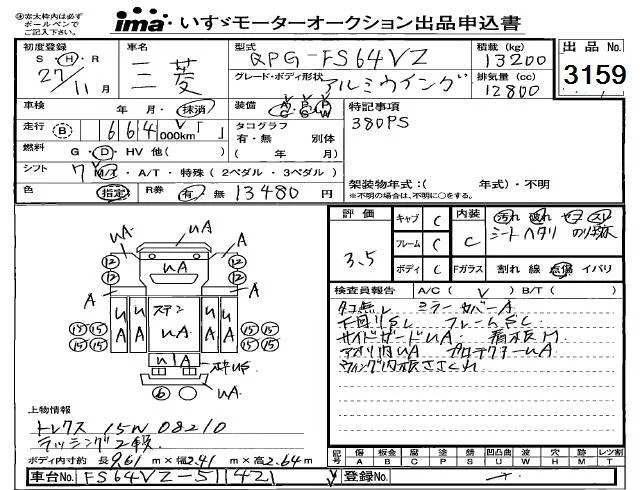 ※赤太枠内は必ず
ボールペンで
ご記入下さい。
ima いすゞモーターオークション出品申込書
初度登録 S・H・R 27/11月
車名 三菱
型式 QPG-FS64VZ
積載(kg) 13200
出品No. 3159
グレード・ボディ形状 アルミウイング
排気量(cc) 12800
車検 年・月・抹消
装備
特記事項
380PS
走行 B 1664,000km「 」
タコグラフ
有・無 別体
( 年 月)
燃料 G・D・HV 他( )
シフト 7 M/T・A/T・特殊(2ペダル・3ペダル)
色 指定 R券 有 無 13480円
架装物年式:( 年式)・不明
※不明の場合は、不明に○をする。
評価 3.5
キャブ C
フレーム C
ボディ C
内装 C
汚れ 破れ セコ スレ
シートヘタリ のり跡
Fガラス 割れ 線 点傷 イバリ
検査員報告 A/C( V ) B/T( )
タコ無し ミラーカバーA
下回りSし フレームSC
サイドガードuA 看板M
アオリ内uA プロテクターuA
ウイング内板ささくれ
uA uA uA
12 12 12 12
A A
uA uA ステン uA uA uA
15 15 15 15 15 15 15 15
u1A ステキuS
6 uA
上物情報
トレクス 15N 08210
ラッシング2段
ボディ内寸約 長9.61m×幅2.41m×高2.64m
記号 傷A 板金B 腐C 塗P 錆S 凹凸曲U 波W 穴H 跡M レツ割T
車台No. FS64VZ-51 1421
登録No.